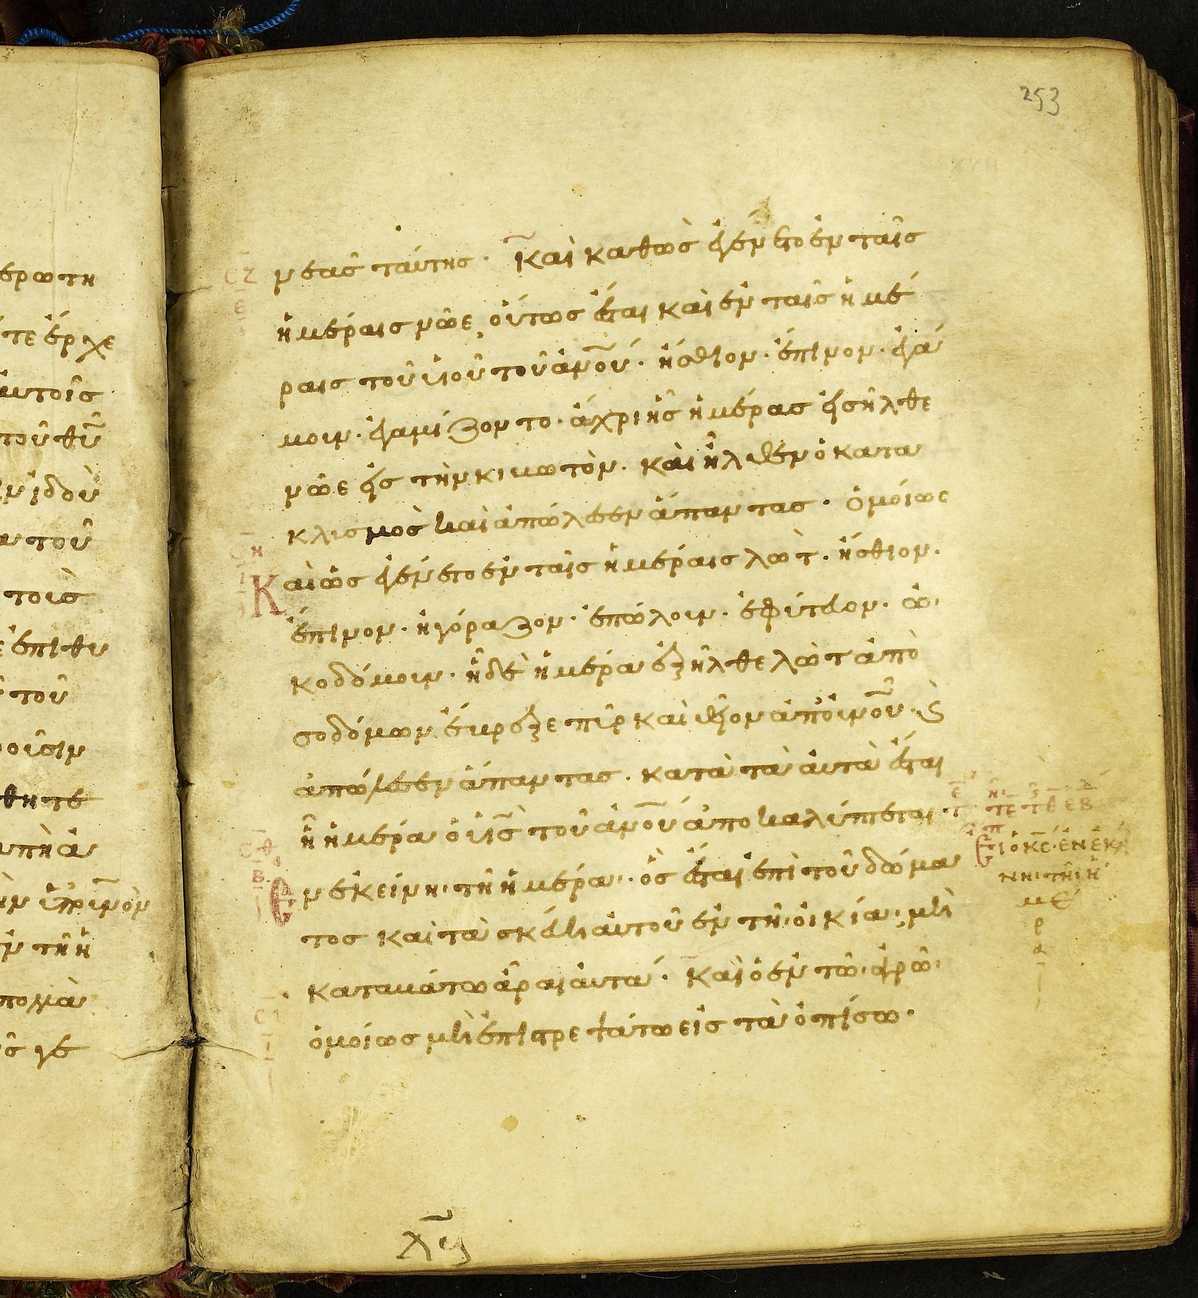 253
ερωτη
τε έρχε
ἀυτοῖς
τοῦ θῦ
ἰδοὺ
τοῦ
τοις
ἐπιθυ
τοῦ
ουσιν
θητε
τῆ ἡ
νεᾶς ταύτης. Καὶ καθὼς ἐγένετο ἐν ταῖς
ἡμέραις νῶε, οὕτως ἔσται καὶ ἐν ταῖς ἡμέ
ραις τοῦ υἱοῦ τοῦ ἀνου. ἤσθιον. ἔπινον. ἐγά
μουν. ἐγαμίζοντο. ἄχρι ἧς ἡμέρας εἰσῆλθε
νῶε εἰς τὴν κιβωτὸν. καὶ ἦλθεν ὁ κατα
κλισμὸς καὶ ἀπώλεσεν ἅπαντας. Ὁμοίως
Καὶ ὡς ἐγένετο ἐν ταῖς ἡμέραις λὼτ. ἤσθιον.
ἔπινον. ἠγόραζον. ἐπώλουν. ἐφύτευον. ὠ
κοδόμουν. ἧ δὲ ἡμέρα ἐξῆλθε λὼτ ἀπὸ
σοδόμων, ἔβρεξε πῦρ καὶ θεῖον ἀπ οὐνου. ϗ
ἀπώλεσεν ἅπαντας. κατὰ τὰ ἀυτὰ ἔσται
ἧ ἡμέρα ὁ υἱς τοῦ ἀνου ἀποκαλύπτεται.
Εν ἐκείνη τῆ ἡμέρα. ὃς ἔσται ἐπὶ τοῦ δώμα
τος καὶ τὰ σκεύη ἀυτοῦ ἐν τῆ οἰκία, μὴ
καταβάτω ἆραι ἀυτά. Καὶ ὁ ἐν τῶ ἀγρῶ
ὁμοίως μὴ ἐπιστρεψάτω εἰς τὰ ὀπίσω.
ὁ κς ἐν ἐκεί
νη τῆ ἡ
μέ
ρ
α